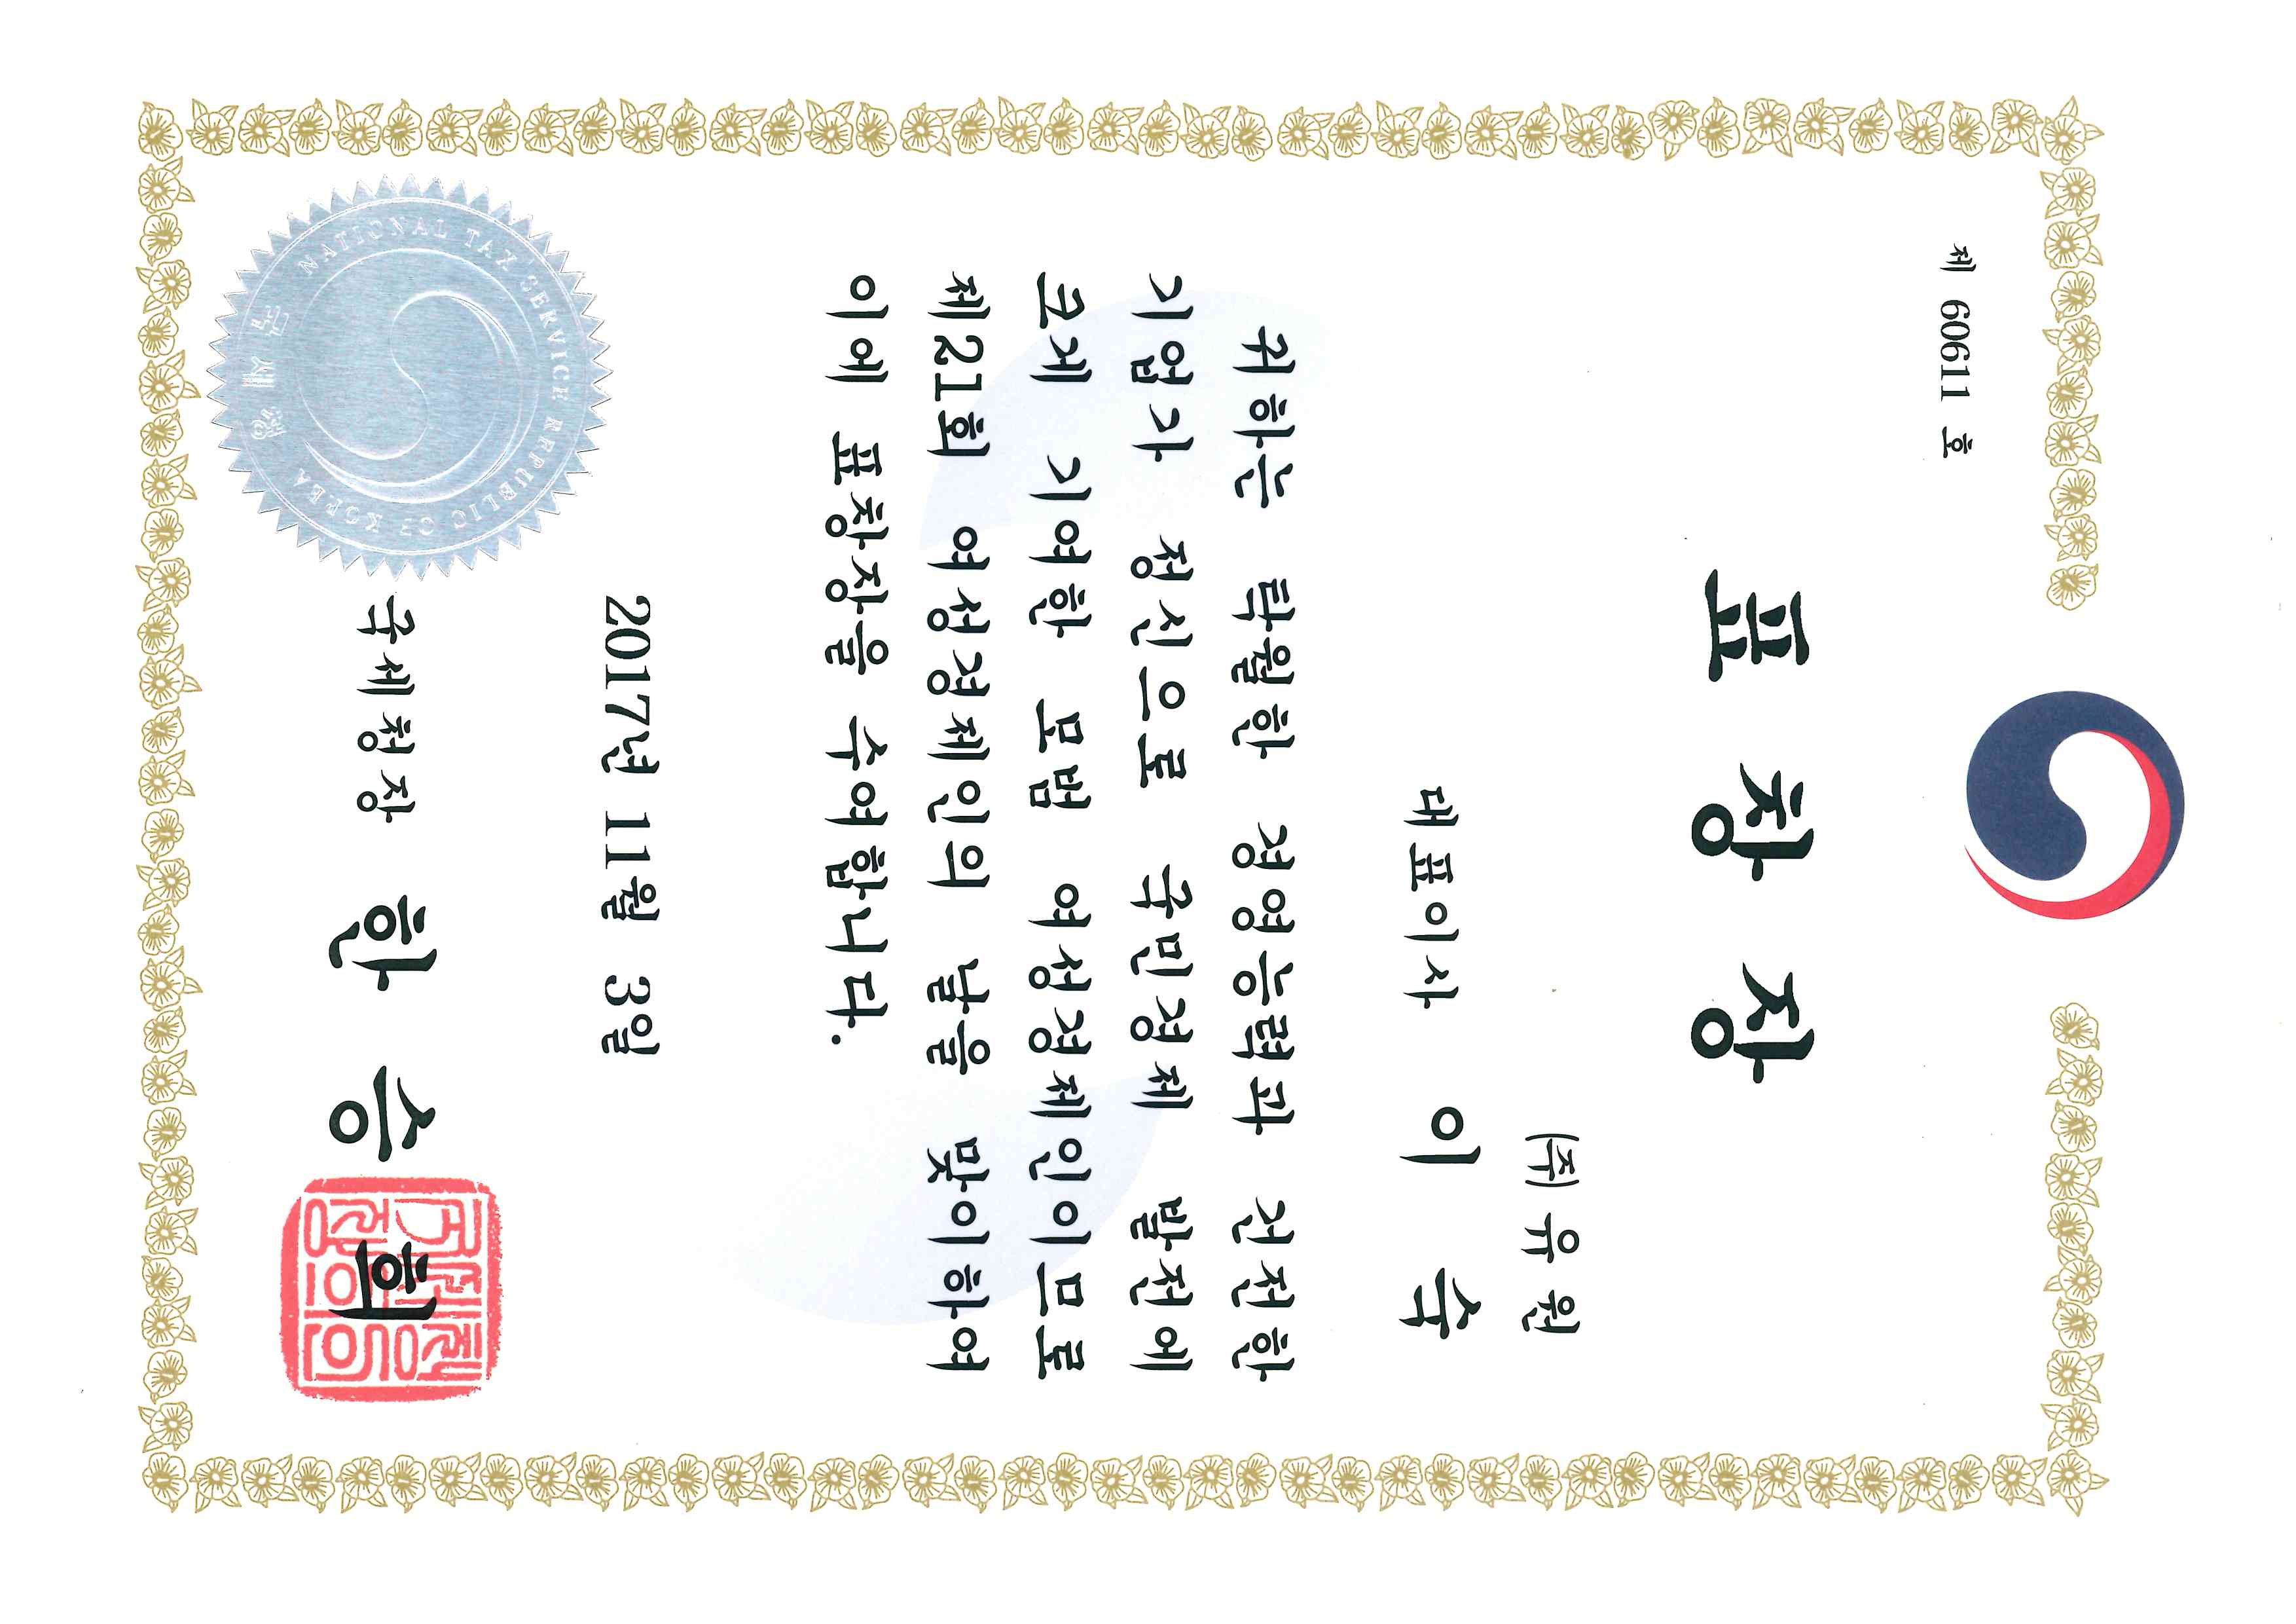 제 60611 호
표 창 장
(주) 유 원
대표이사 이 숙
귀하는 탁월한 경영능력과 건전한
기업가 정신으로 국민경제 발전에
크게 기여한 모범 여성경제인이므로
제21회 여성경제인의 날을 맞이하여
이에 표창장을 수여합니다.
2017년 11월 3일
국세청장 한 승 희
NATIONAL TAX SERVICE REPUBLIC OF KOREA